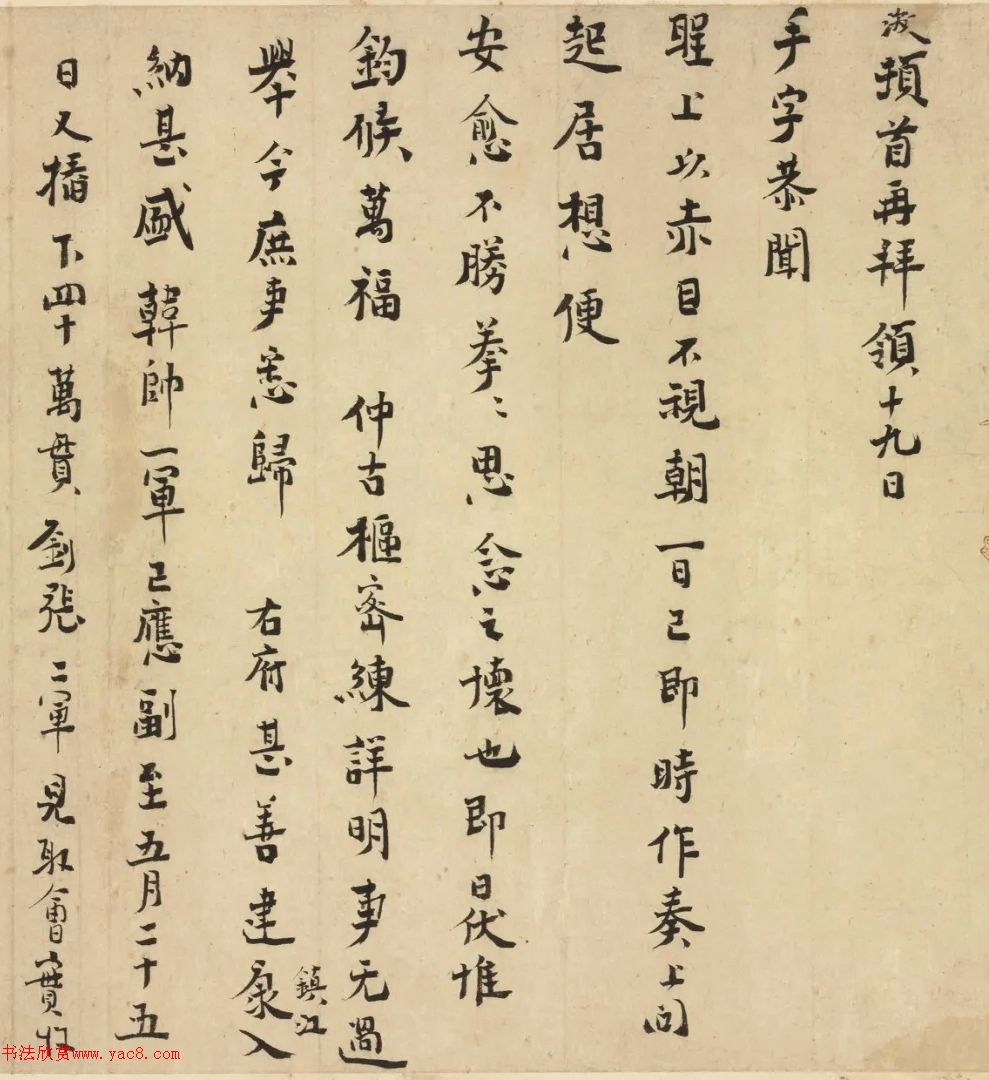 浚頓首再拜領十九日
手字恭聞
聖上以赤目不視朝一日已即時作奏上問
起居想便
安愈不勝拳〻思念之懷也即日伏惟
鈞候萬福 仲古樞密練詳明事无過
舉今庶事悉歸 右府甚善建康入
鎮江
納甚盛韓帥一軍已應副至五月二十五
日又樁下四十萬貫劉張二軍見取會實收
书法欣赏www.yac8.com